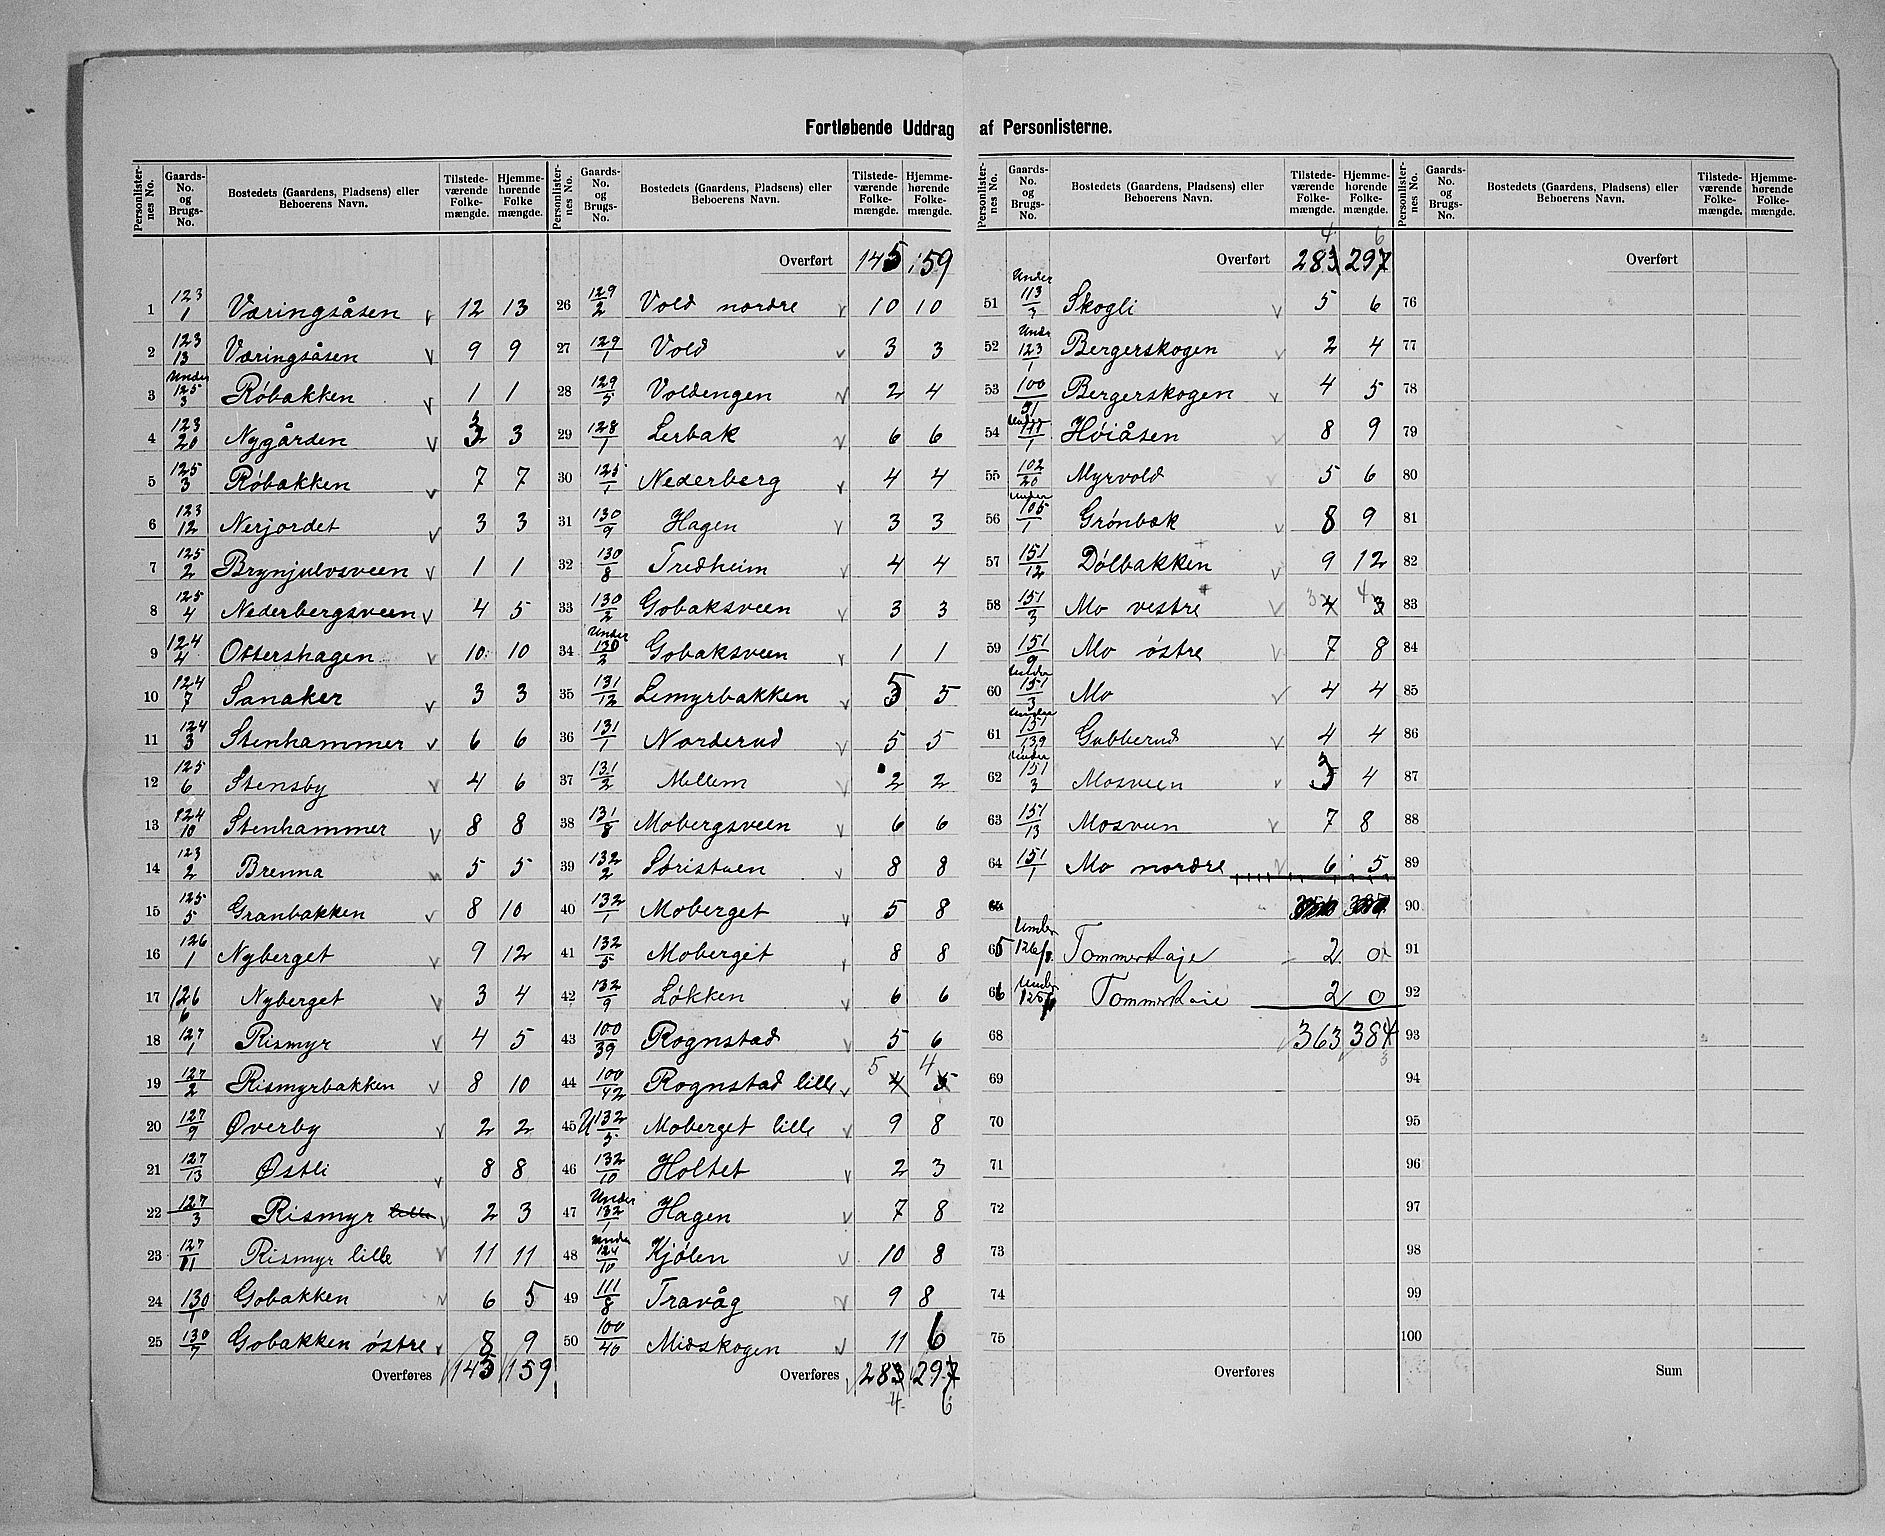 Fortløbende Uddrag af Personlisterne.
Personlister-nes No. | Gaards-No. og Brugs-No. | Bostedets (Gaardens, Pladsens) eller Beboerens Navn. | Tilstede-værende Folke-mængde. | Hjemme-hørende Folke mængde.
1 123/1 Væringsåsen 12 13
2 123/13 Væringsåsen 9 9
3 Under 125/3 Røbakken 1 1
4 123/20 Nygården 3 3
5 125/3 Røbakken 7 7
6 123/12 Nerjordet 3 3
7 125/2 Brynjulvsveen 1 1
8 125/4 Nederbergsveen 4 5
9 124/4 Ottershagen 10 10
10 124/7 Sanaker 3 3
11 124/3 Stenhammer 6 6
12 125/6 Stensby 4 6
13 124/10 Stenhammer 8 8
14 123/2 Brenna 5 5
15 125/5 Granbakken 8 10
16 126/1 Nyberget 9 12
17 126/6 Nyberget 3 4
18 127/1 Rismyr 4 5
19 127/2 Rismyrbakken 8 10
20 127/9 Øverby 2 2
21 127/13 Østli 8 8
22 127/3 Rismyr lille 2 3
23 127/11 Rismyr lille 11 11
24 130/1 Gobakken 6 5
25 130/7 Gobakken østre 8 9
Overføres 145 159
Personlister-nes No. | Gaards-No. og Brugs-No. | Bostedets (Gaardens, Pladsens) eller Beboerens Navn. | Tilstede-værende Folke-mængde. | Hjemme-hørende Folke-mængde.
Overført 145 159
26 129/2 Vold nordre 10 10
27 129/1 Vold 3 3
28 129/5 Voldengen 2 4
29 128/1 Lerbak 6 6
30 125/1 Nederberg 4 4
31 130/9 Hagen 3 3
32 130/8 Tredheim 4 4
33 130/2 Gobaksveen 3 3
34 Under 130/2 Gobaksveen 1 1
35 131/12 Lemyrbakken 5 5
36 131/1 Norderud 5 5
37 131/2 Mellem 2 2
38 131/8 Mobergsveen 6 6
39 132/2 Söristuen 8 8
40 132/1 Moberget 5 8
41 132/5 Moberget 8 8
42 132/9 Løkken 6 6
43 100/39 Rognstad 5 6
44 100/42 Rognstad lille 5 4 4 5
45 U 132/5 Moberget lille 9 8
46 132/10 Holtet 2 3
47 Under 132/1 Hagen 7 8
48 Under 124/10 Kjølen 10 8
49 111/8 Travåg 9 8
50 100/40 Midskogen 11 6
Overføres 283 297
4 6
Personlister-nes No. | Gaards-No. og Brugs-No. | Bostedets (Gaardens, Pladsens) eller Beboerens Navn. | Tilstede-værende Folke-mængde. | Hjemme-hørende Folke-mængde.
4 6
Overført 283 297
51 Under 113/3 Skogli 5 6
52 Under 123/1 Bergerskogen 2 4
53 100/51 Bergerskogen 4 5
54 Under 111/1 Høiåsen 8 9
55 102/20 Myrvold 5 6
56 Under 105/1 Grønbæk 8 9
57 151/12 Dølbakken 9 12
58 151/3 Mo vestre 3 4 4 3
59 151/9 Mo østre 7 8
60 Under 151/3 Mo 4 4
61 Under 151/139 Gubberud 4 4
62 Under 151/3 Mosveen 3 4
63 151/13 Mosveen 7 8
64 151/1 Mo nordre 6 5
65 Under 126/8 Tømmerkoje 2 0
66 Under 125/6 Tømmerkoie 2 0
68 363 384
3
69
70
71
72
73
74
75
Overføres
Personlister-nes No. | Gaards-No. og Brugs-No. | Bostedets (Gaardens, Pladsens) eller Beboerens Navn. | Tilstede-værende Folke-mængde. | Hjemme-hørende Folke-mængde.
Overført
76
77
78
79
80
81
82
83
84
85
86
87
88
89
90
91
92
93
94
95
96
97
98
99
100
Sum